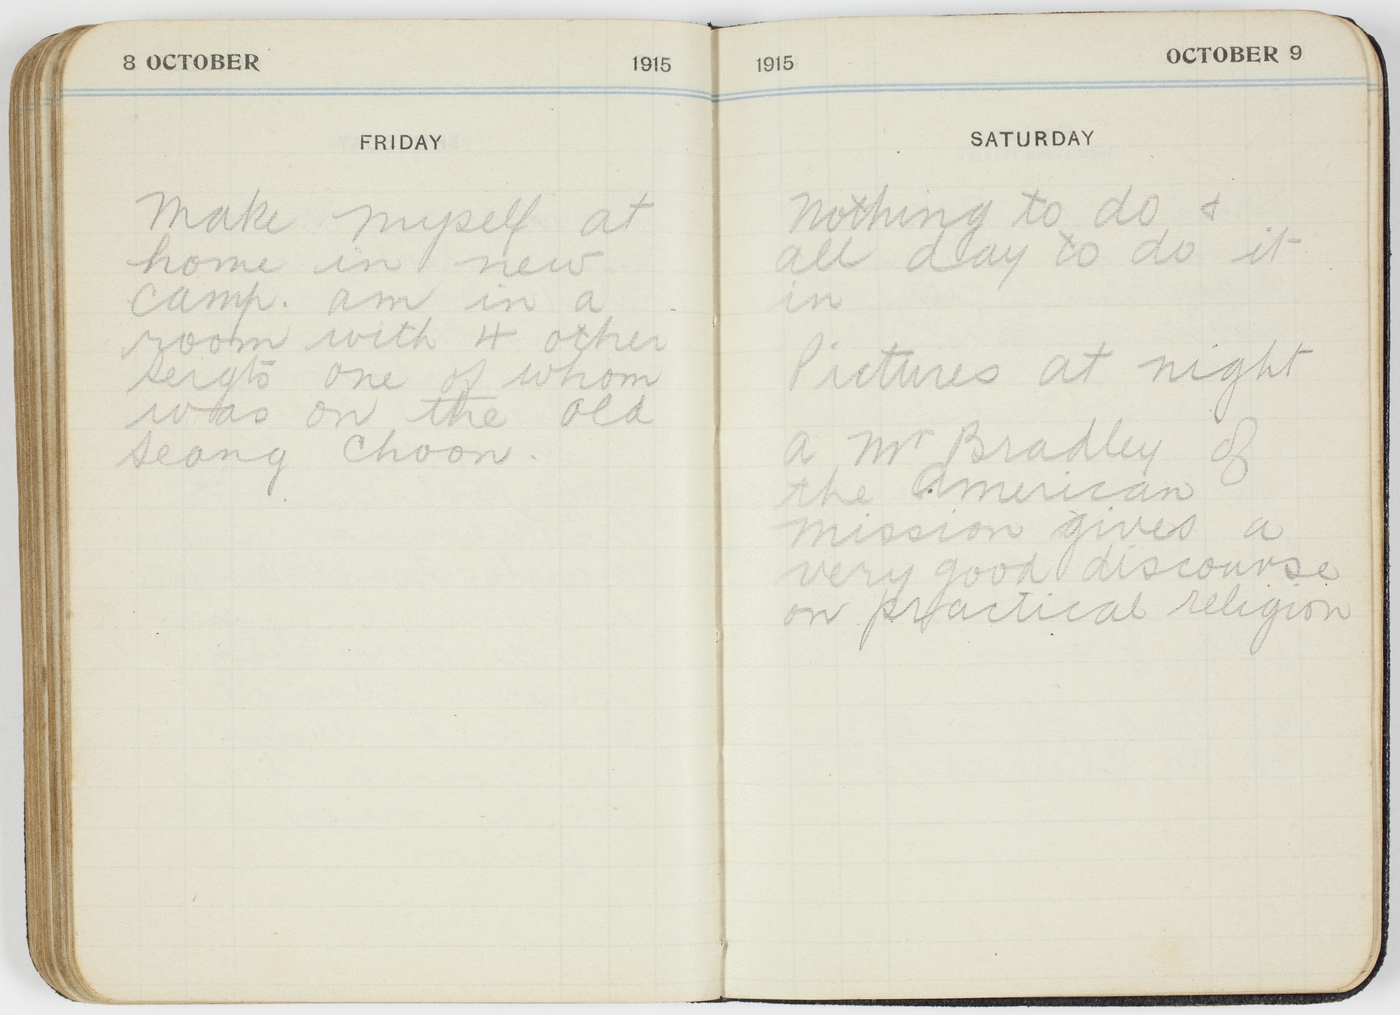 8 OCTOBER 1915
FRIDAY
Make myself at
home in new
camp. am in a
room with 4 other
sergts one of whom
was on the old
Seang Choon.
1915 OCTOBER 9
SATURDAY
Nothing to do &
all day to do it
in
Pictures at night
A Mr Bradley of
the American
Mission gives a
very good discourse
on practical religion